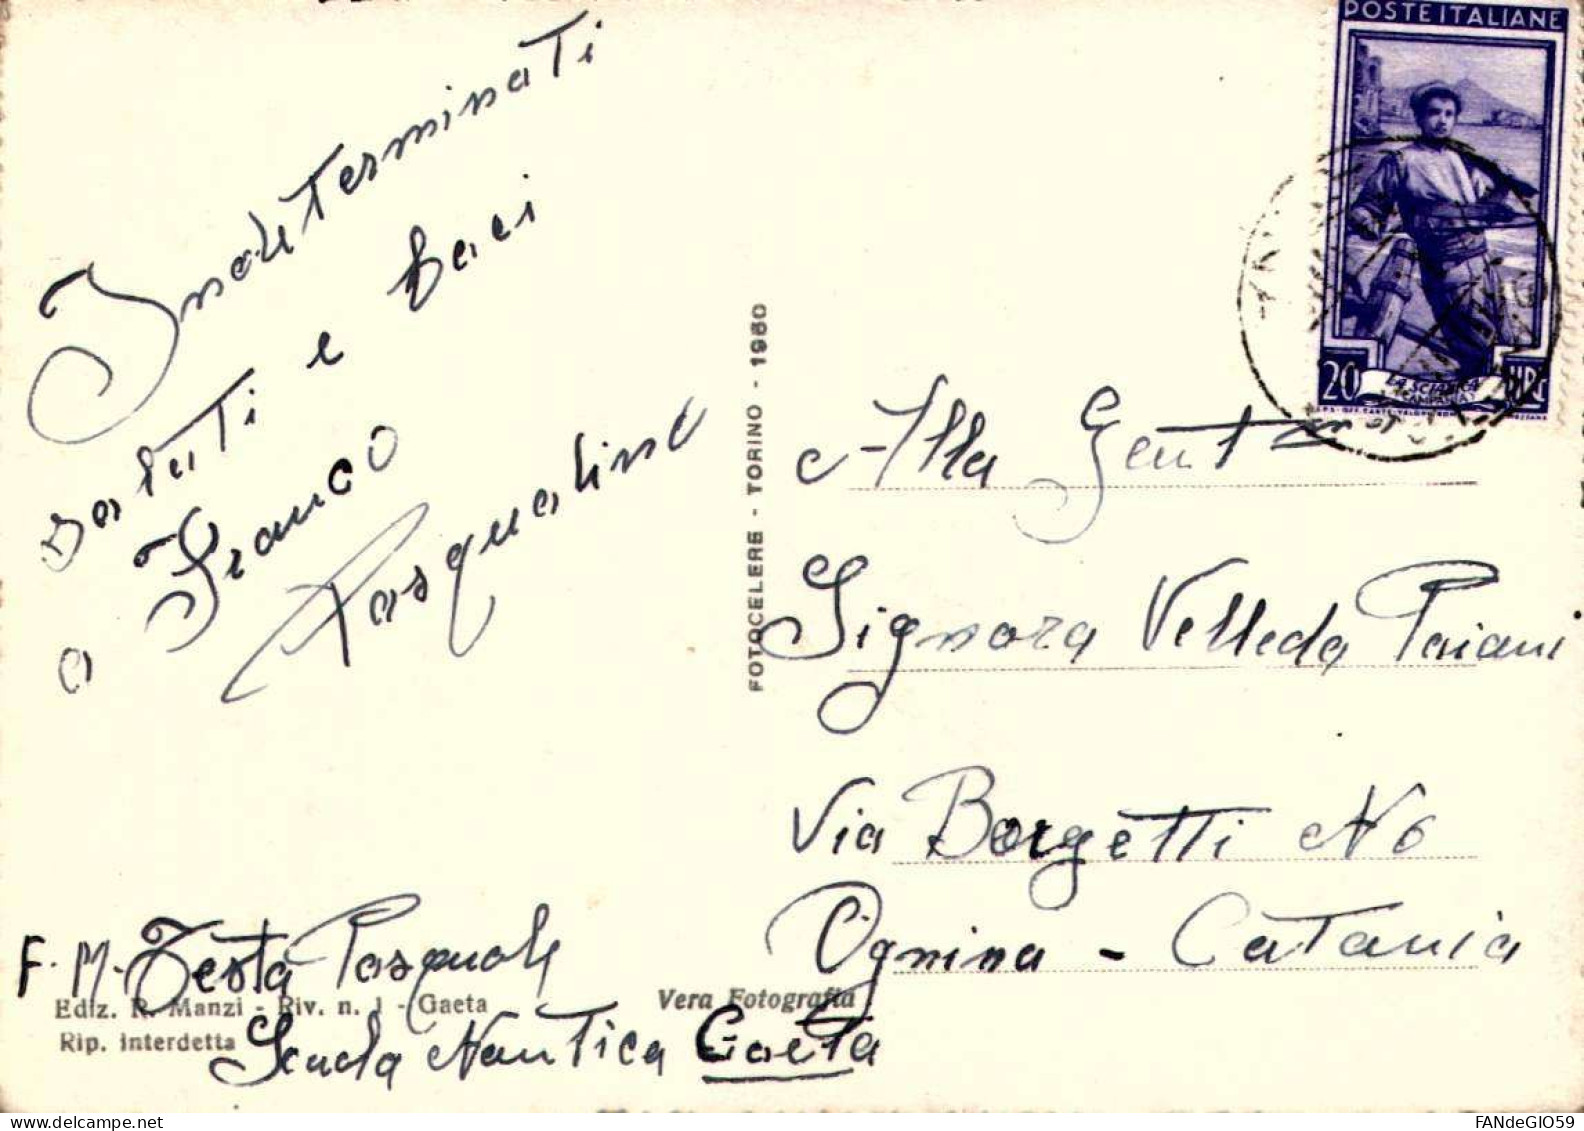 Indeterminati
saluti e baci
a Franco
Pasqualino
F. M. Testa Pasquale
Scuola Nautica Gaeta
Ediz. R. Manzi - Riv. n. 1 - Gaeta
Rip. interdetta
Vera Fotografia
FOTOCELERE - TORINO - 1950
POSTE ITALIANE
20 LIRE
LA SCIABICA
(CAMPANIA)
Alla Gent
Signora Velleda Paiani
Via Borgetti N 6
Ognina - Catania
FANdeGIO59